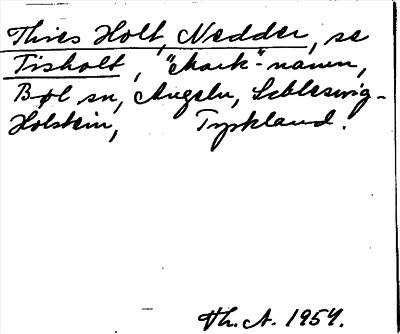 Thies Holt, Nedder, se
Tisholt, "Mark"-navn,
Bøl sn, Angeln, Schleswig-
Holstein, Tyskland.
Th. A. 1954.